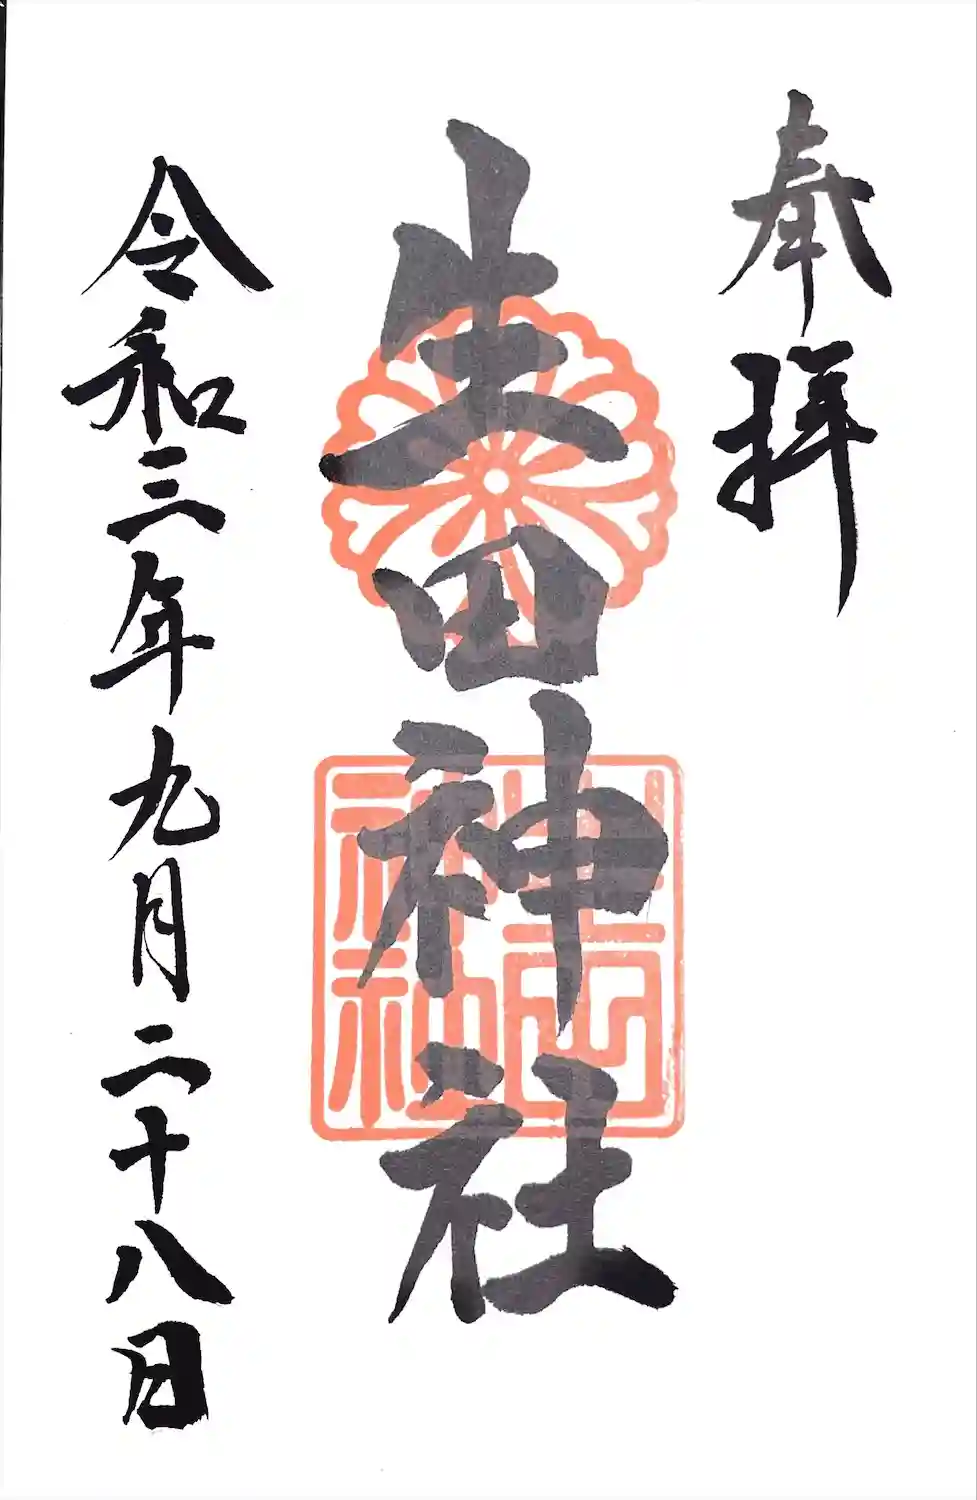 奉拝
生田神社
生田神社
令和三年九月二十八日